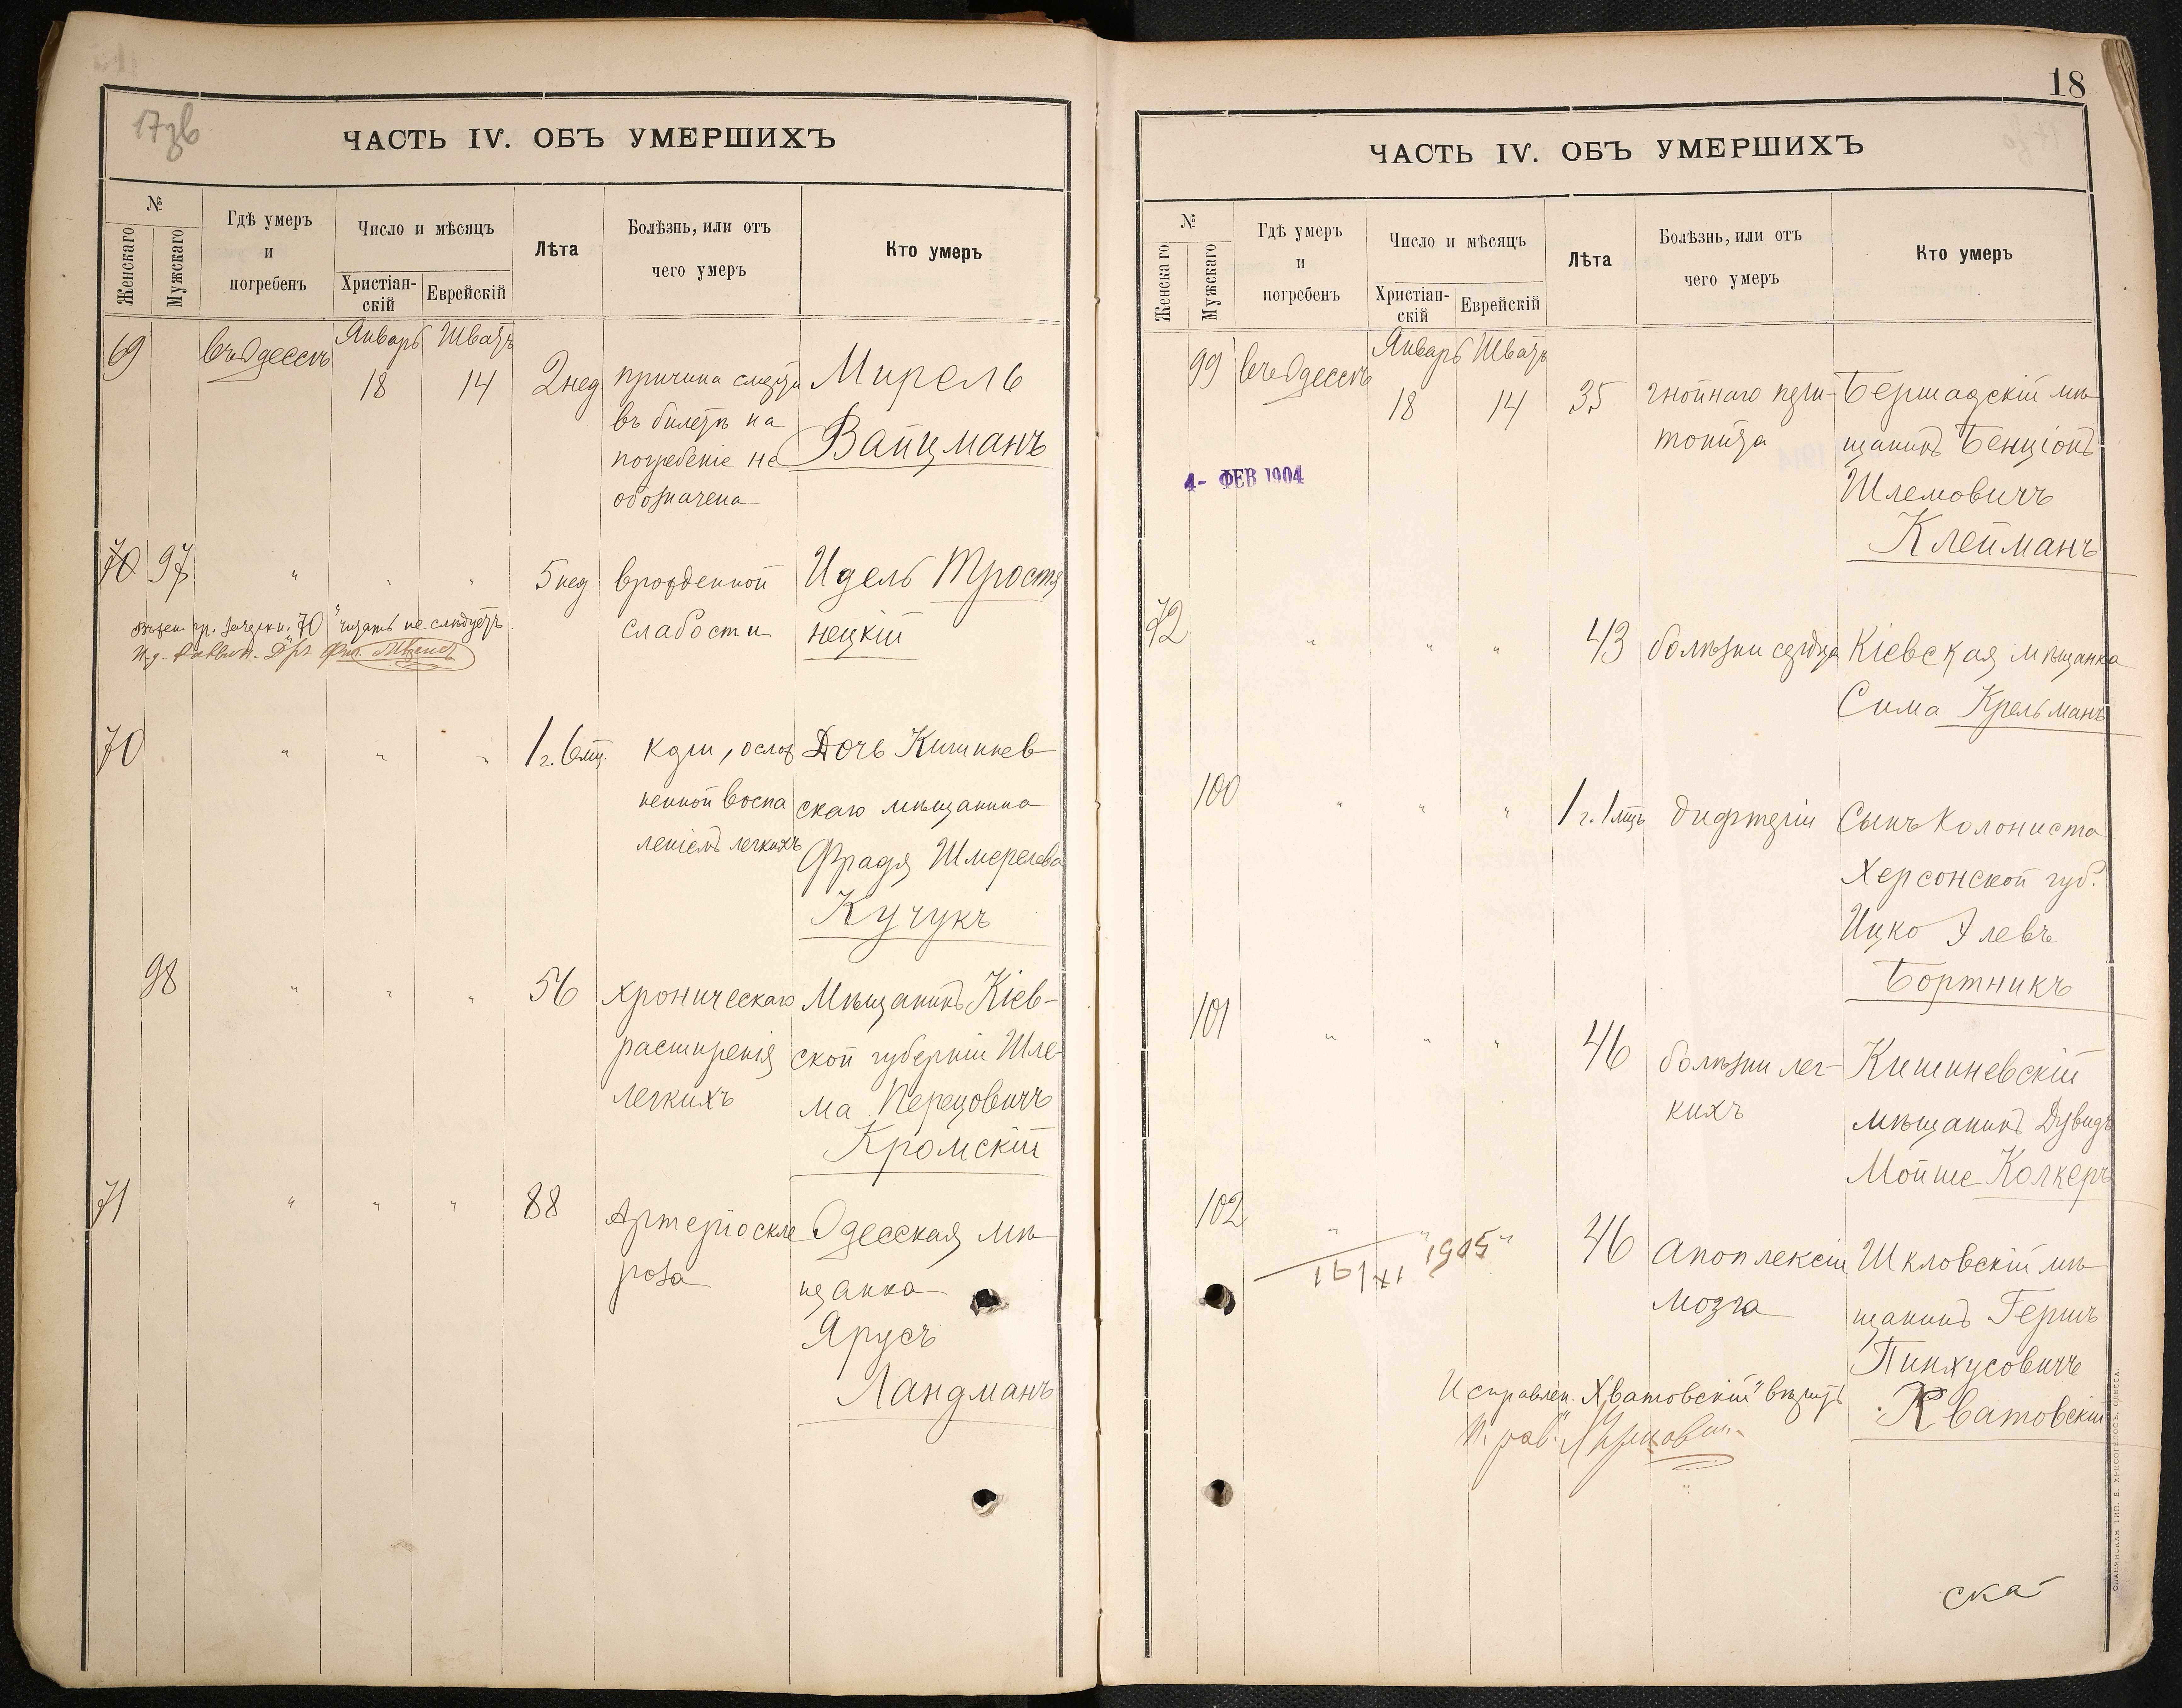 17зв
ЧАСТЬ IV. ОБЪ УМЕРШИХЪ
№
Женскаго
Мужскаго
Гдѣ умеръ
и
погребенъ
Число и мѣсяцъ
Христіан-
скій
Еврейскій
Лѣта
Болѣзнь, или отъ
чего умеръ
Кто умеръ
69 въ Одессѣ Январь 18 Шватъ 14 2 нед причина смерти Мирель
въ билетѣ на Вайцманъ
погребеніе не
обозначена
70 97 " " " 5 нед. врожденной Идель Тростя
слабости нецкій
гр. зачеркн. "70" читать не слѣдуетъ.
70 " " " 1 г. 6 мц. кори, ослож Дочь Кишинев
ненной воспа скаго мѣщанина
леніемъ легкихъ Фрадя Шмерелева
Кучукъ
98 " " " 56 хроническаго Мѣщанинъ Кіев-
расширенія ской губерніи Шле-
легкихъ ма Перецовичъ
Кромскій
71 " " " 88 Артеріоскле Одесская мѣ
роза щанка
Ярусъ
Ландманъ
18
ЧАСТЬ IV. ОБЪ УМЕРШИХЪ
№
Женскаго
Мужскаго
Гдѣ умеръ
и
погребенъ
Число и мѣсяцъ
Христіан-
скій
Еврейскій
Лѣта
Болѣзнь, или отъ
чего умеръ
Кто умеръ
99 въ Одессѣ Январь 18 Шватъ 14 35 гнойнаго пери- Бершадскій мѣ
тонита щанинъ Бенціонъ
4- ФЕВ 1904
Шлемовичъ
Клейманъ
72 " " " 43 болѣзни сердца Кіевская мѣщанка
Сима Крельманъ
100 " " " 1 г. 1 мцъ дифтеріи Сынъ колониста
Херсонской губ.
Ицко Элевъ
Бортникъ
101 " " " 46 болѣзни лег- Кишиневскій
кихъ мѣщанинъ Дувидъ
Мойше Колкеръ
102 " " " 46 апоплексіи Шкловскій мѣ
мозга щанинъ Гершъ
1905
Пинхусовичъ
Исправлен. "Хватовскій" вѣрить
Кватовскій
ска
СЛАВЯНСКАЯ ТИП. Е. ХРИСОГЕЛОСЪ, ОДЕССА.